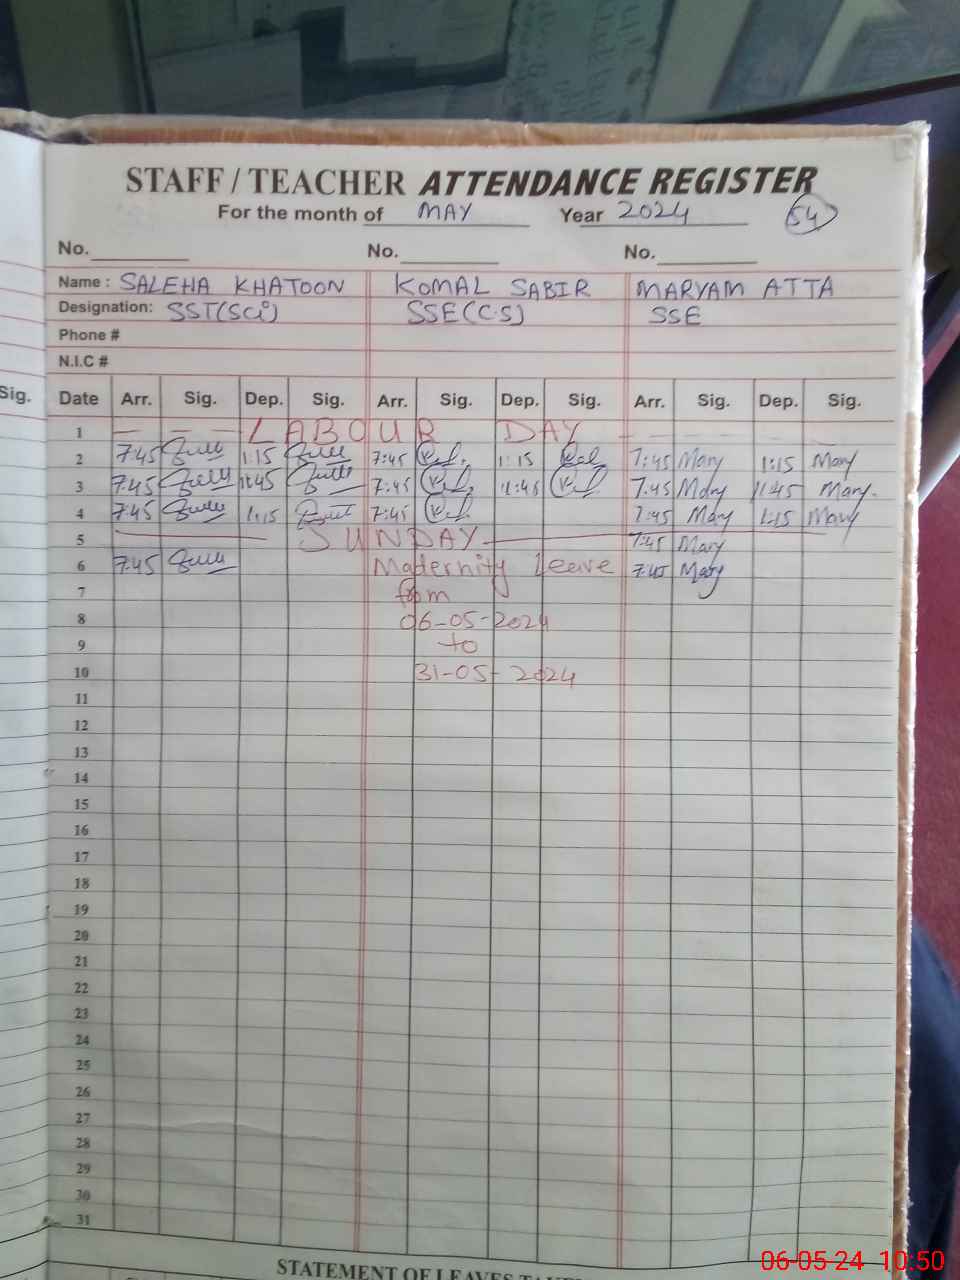 STAFF / TEACHER ATTENDANCE REGISTER
For the month of MAY Year 2024 54
No. No. No.
Name : SALEHA KHATOON KOMAL SABIR MARYAM ATTA
Designation: SST(Sci) SSE(C.S) SSE
Phone #
N.I.C #
Sig. Date Arr. Sig. Dep. Sig. Arr. Sig. Dep. Sig. Arr. Sig. Dep. Sig.
1 LABOUR DAY
2 7:45 1:15 7:45 1:15 7:45 Mary 1:15 Mary
3 7:45 11:45 7:45 11:45 7:45 Mary 11:45 Mary.
4 7:45 1:15 7:45 7:45 Mary 1:15 Mary
5 SUNDAY 7:45 Mary
6 7:45 Maternity Leave 7:45 Mary
7 from
8 06-05-2024
9 to
10 31-05-2024
11
12
13
14
15
16
17
18
19
20
21
22
23
24
25
26
27
28
29
30
31
STATEMENT OF LEAVES
06-05-24 10:50